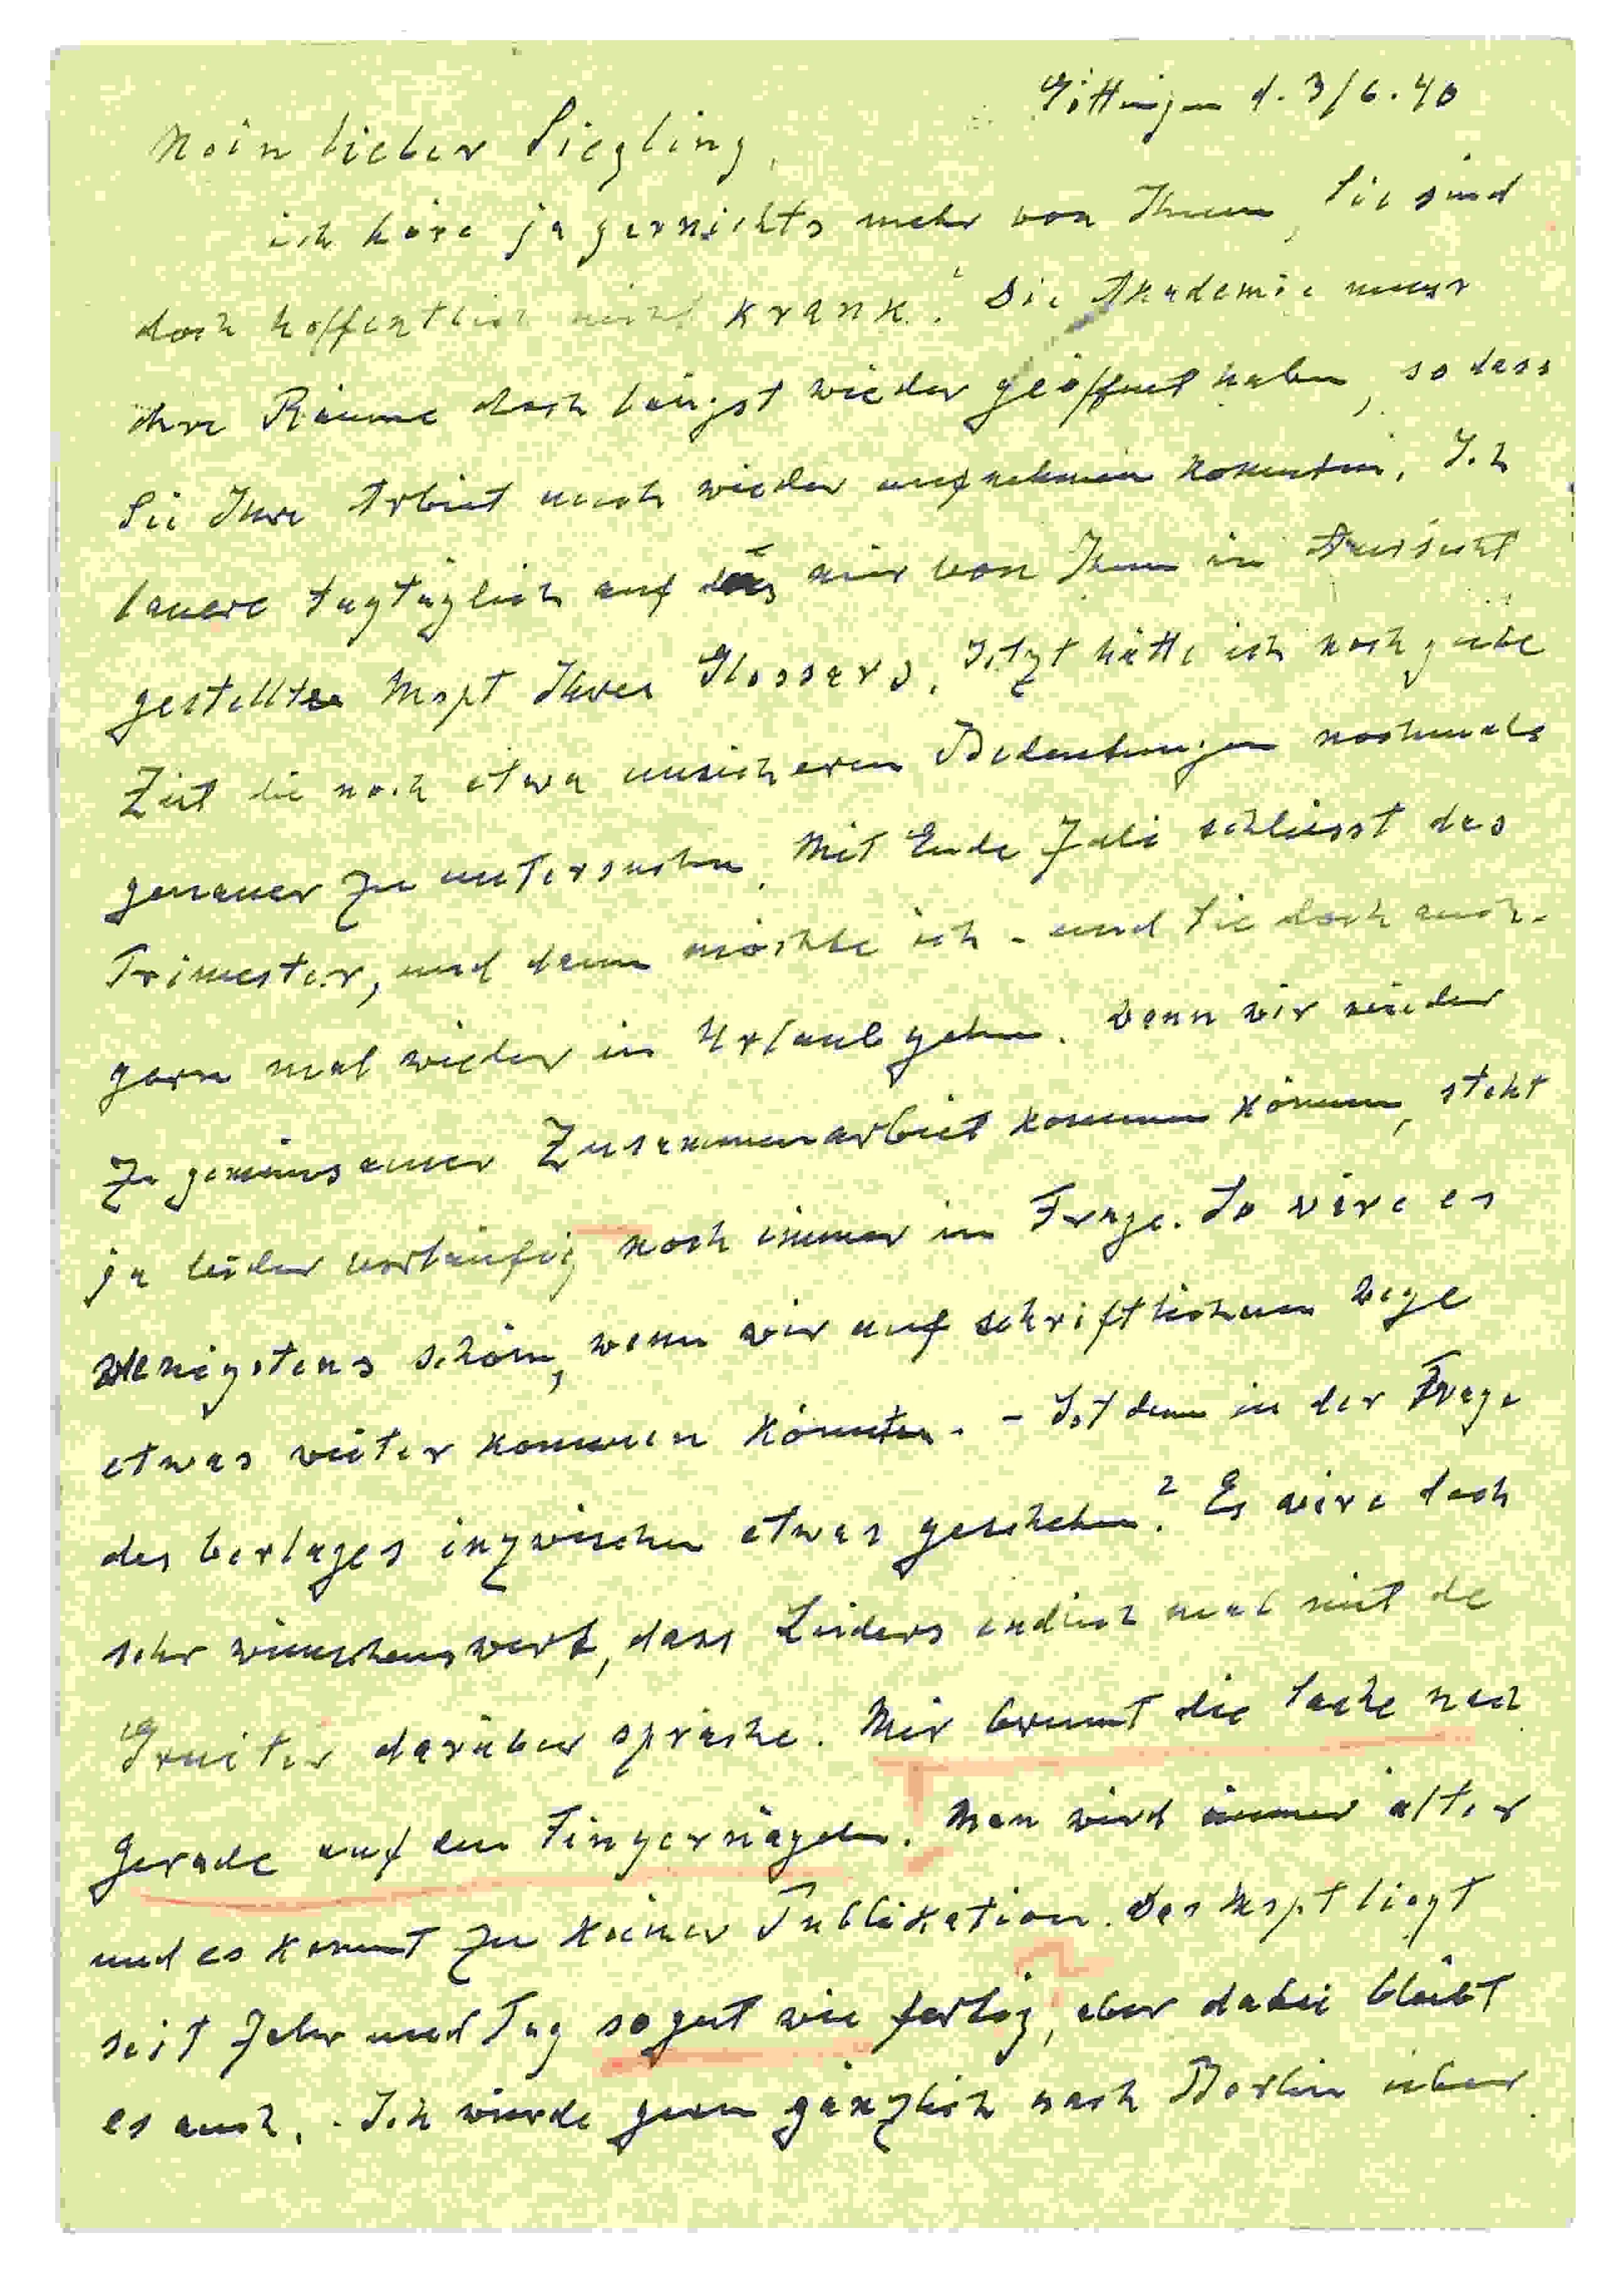 Göttingen d. 3/6.40
Mein lieber Siegling,
ich höre ja garnichts mehr von Ihnen, Sie sind
doch hoffentlich nicht krank? Die Akademie muss
ihre Räume doch längst wieder geöffnet haben, so dass
Sie Ihre Arbeit auch wieder aufnehmen konnten. Ich
lauere tagtäglich auf das mir von Ihnen in Aussicht
gestellte Mspt Ihres Glossars. Jetzt hätte ich noch gute
Zeit die noch etwa unsicheren Bedeutungen nochmals
genauer zu untersuchen. Mit Ende Juli schliesst das
Trimester, und dann möchte ich - und Sie doch auch -
gern mal wieder in Urlaub gehen. Wann wir wieder
zu gemeinsamer Zusammenarbeit kommen können, steht
ja leider vorläufig noch immer in Frage. So wäre es
wenigstens schön, wenn wir auf schriftlichem Wege
etwas weiter kommen könnten. - Ist denn in der Frage
des Verlages inzwischen etwas geschehen? Es wäre doch
sehr wünschenswert, dass Lüders endlich mal mit de
Gruiter darüber spräche. Mir brennt die Sache nach
gerade auf den Fingernägeln. Man wird immer älter
und es kommt zu keiner Publikation. Das Mspt liegt
seit Jahr und Tag so gut wie fertig, aber dabei bleibt
es auch. - Ich würde gern gänzlich nach Berlin über